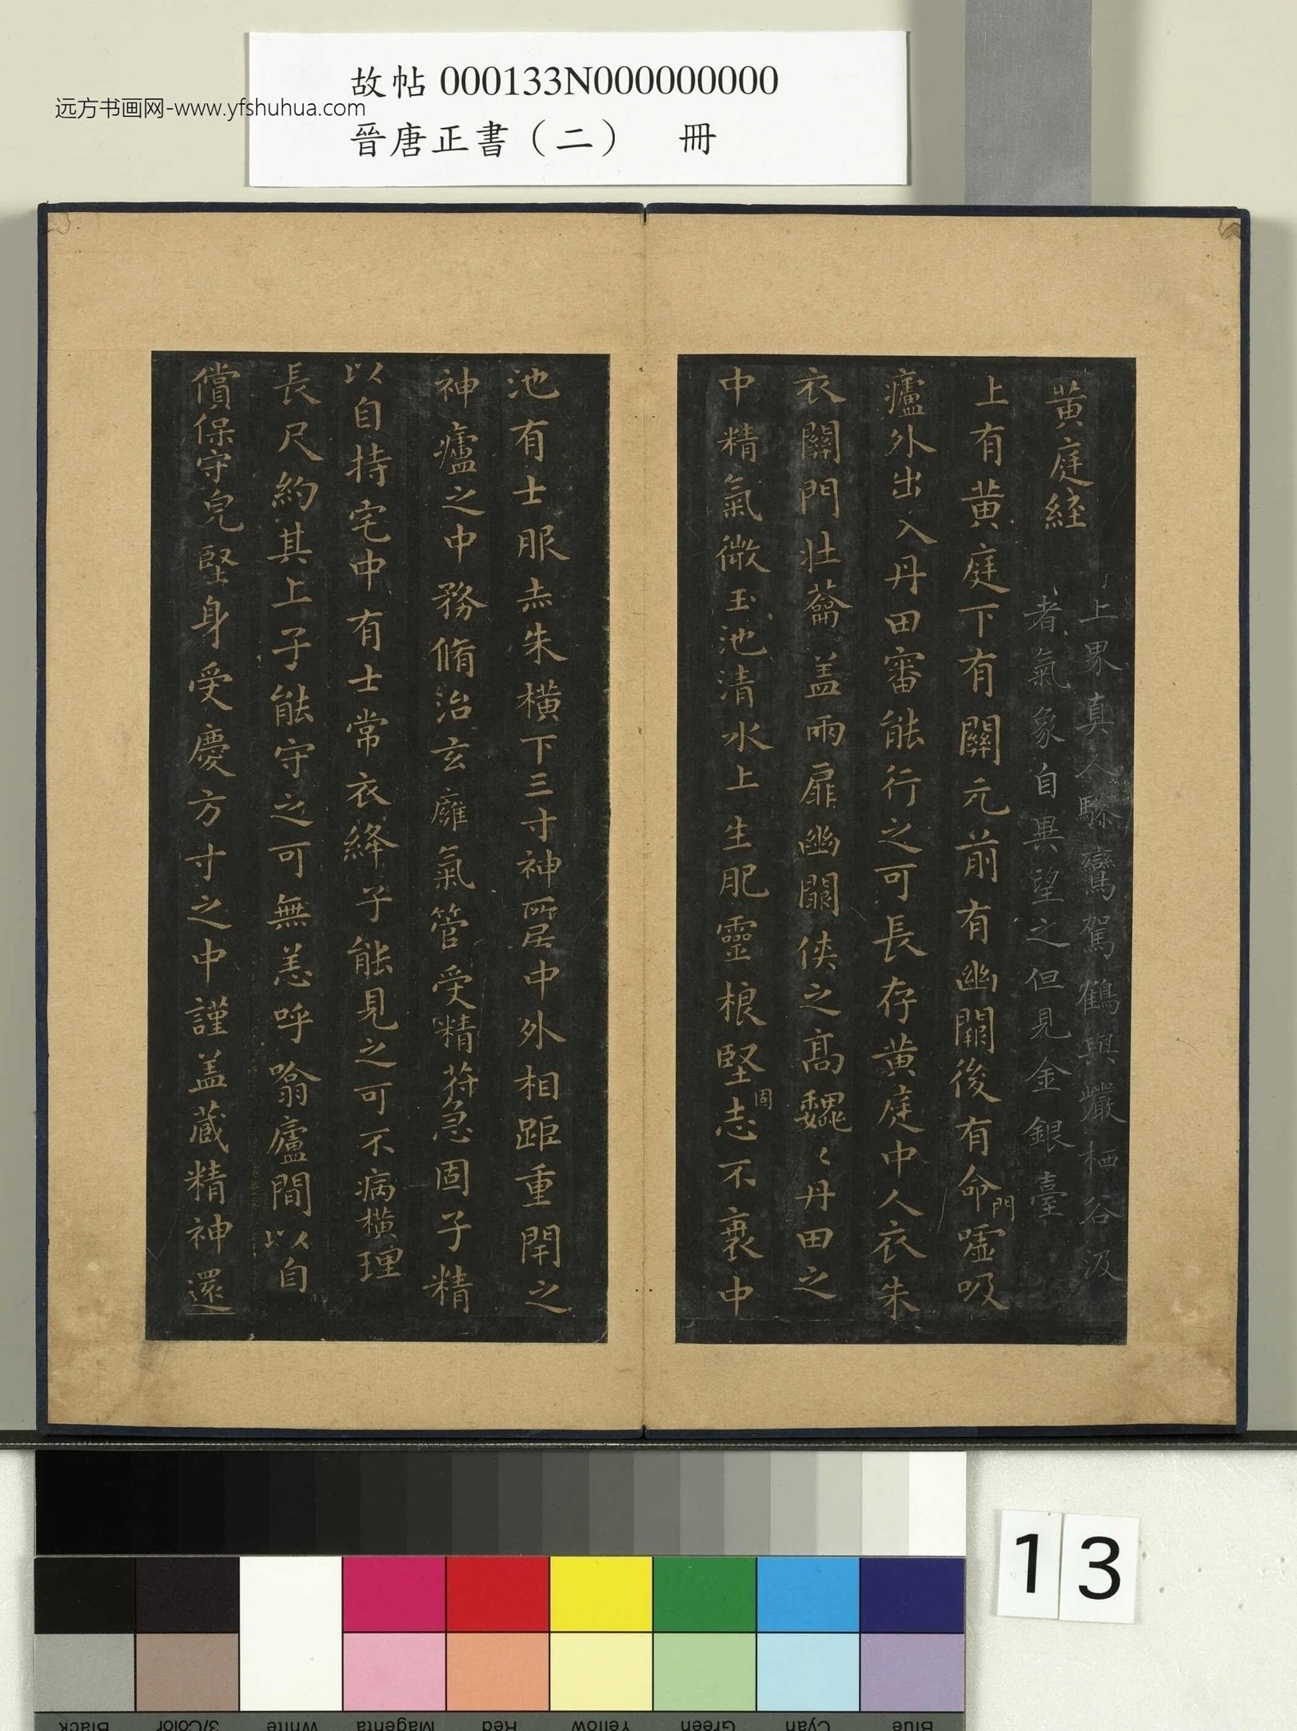 故帖 000133N000000000
远方书画网-www.yfshuhua.com
晉唐正書（二） 冊
黃庭經
上界真人驂鸞駕鶴與巖栖谷汲
者氣象自異望之但見金銀臺
上有黃庭下有關元前有幽闕後有命門噓吸
廬外出入丹田審能行之可長存黃庭中人衣朱
衣關門壯蘥盖兩扉幽闕俠之高魏〻丹田之
中精氣微玉池清水上生肥靈根堅固志不衰中
池有士服赤朱橫下三寸神所居中外相距重閇之
神廬之中務脩治玄廱氣管受精苻急固子精
以自持宅中有士常衣絳子能見之可不病橫理
長尺約其上子能守之可無恙呼噏廬間以自
償保守皃堅身受慶方寸之中謹盖藏精神還
13
Black
3/Color
White
Magenta
Red
Yellow
Green
Cyan
Blue